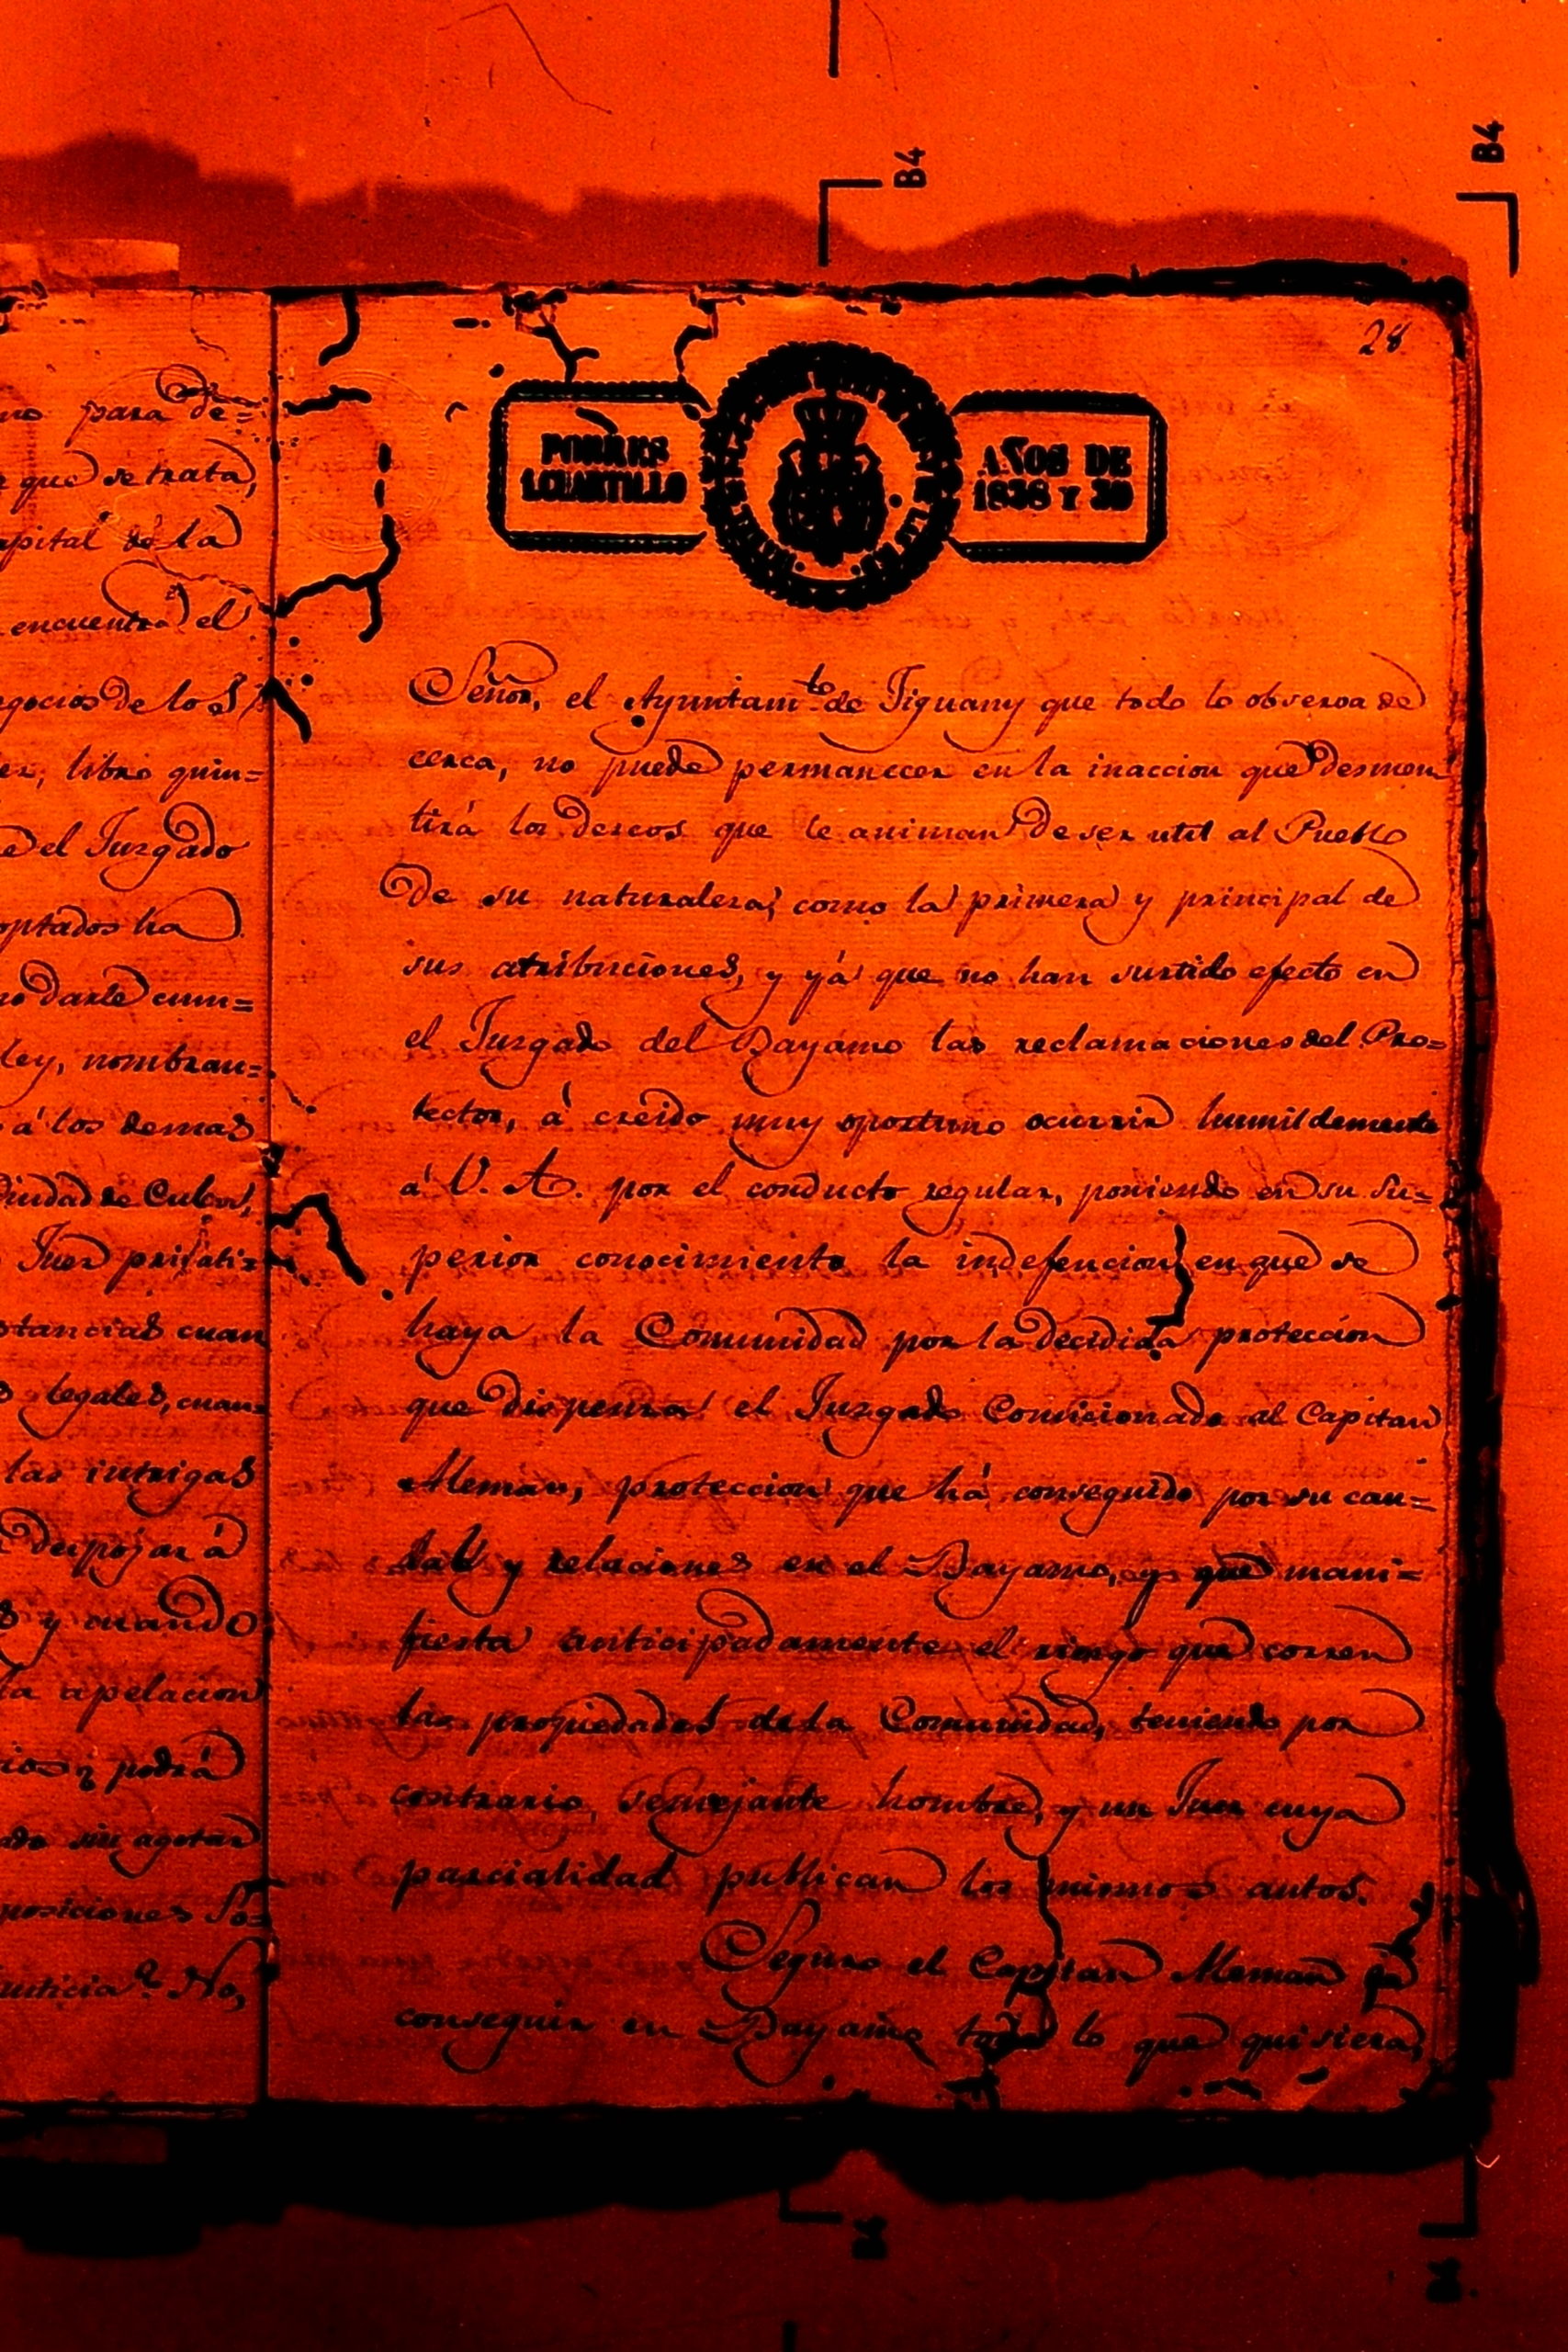 no para de=
que se trata,
pital de la
encuentra el
gocios de los
libro quin=
el Juzgado
optados ha
darle cum=
ley, nombran=
á los demas
Ciudad de Cuba,
Juez privati=
stancias cuan
legales, cuan=
las intrigas
despojar á
y cuando
la apelacion
podrá
sin agotar
posiciones So=
No,
B4
B4
28
POBRES
1.CUARTILLO
AÑOS DE
1838 Y 39
Señor, el Ayuntam.to de Jiguany que todo lo observa de
cerca, no puede permanecer en la inaccion que desmen
tirá los deseos que le animan de ser util al Pueblo
de su naturaleza, como la primera y principal de
sus atribuciones, y yá que no han surtido efecto en
el Juzgado del Bayamo las reclamaciones del Pro=
tector, á creido muy oportuno ocurrir humildemente
á V. A. por el conducto regular, poniendo en su Su=
perior conocimiento la indefencion en que se
haya la Comunidad por la decidida proteccion
que dispensa el Juzgado Comicionado al Capitan
Aleman, proteccion que há conseguido por su cau=
dal y relaciones en el Bayamo, y que mani=
fiesta anticipadamente el riesgo que corren
las propiedades de la Comunidad, teniendo por
contrario, semejante hombre, y un Juez cuya
parcialidad publican los mismos autos.
Seguro el Capitan Aleman de
conseguir en Bayamo todo lo que quisiera,